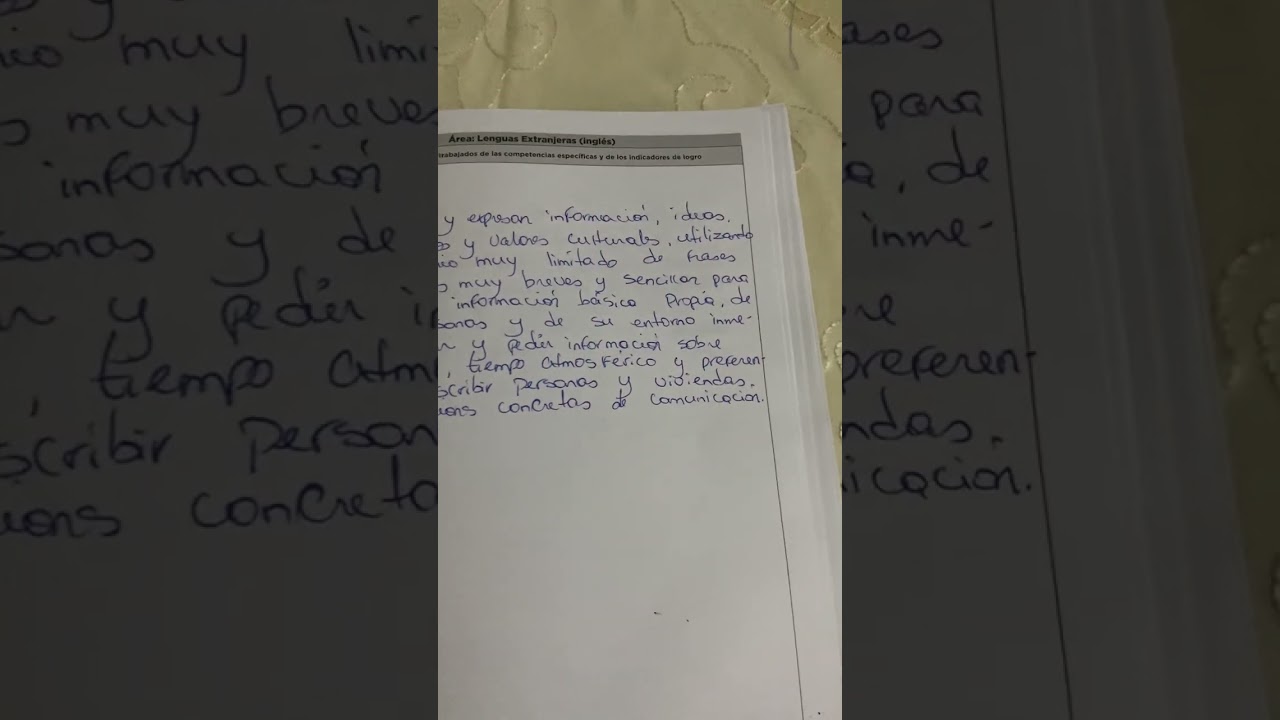 Área: Lenguas Extranjeras (inglés)
trabajados de las competencias específicas y de los indicadores de logro
y expresan información, ideas,
y valores culturales, utilizando
muy limitado de frases
muy breves y sencillas para
información básica Propia, de
y de su entorno inme-
y pedir información sobre
, tiempo atmosférico y preferen-
scribir personas y viviendas.
concretas de comunicación.